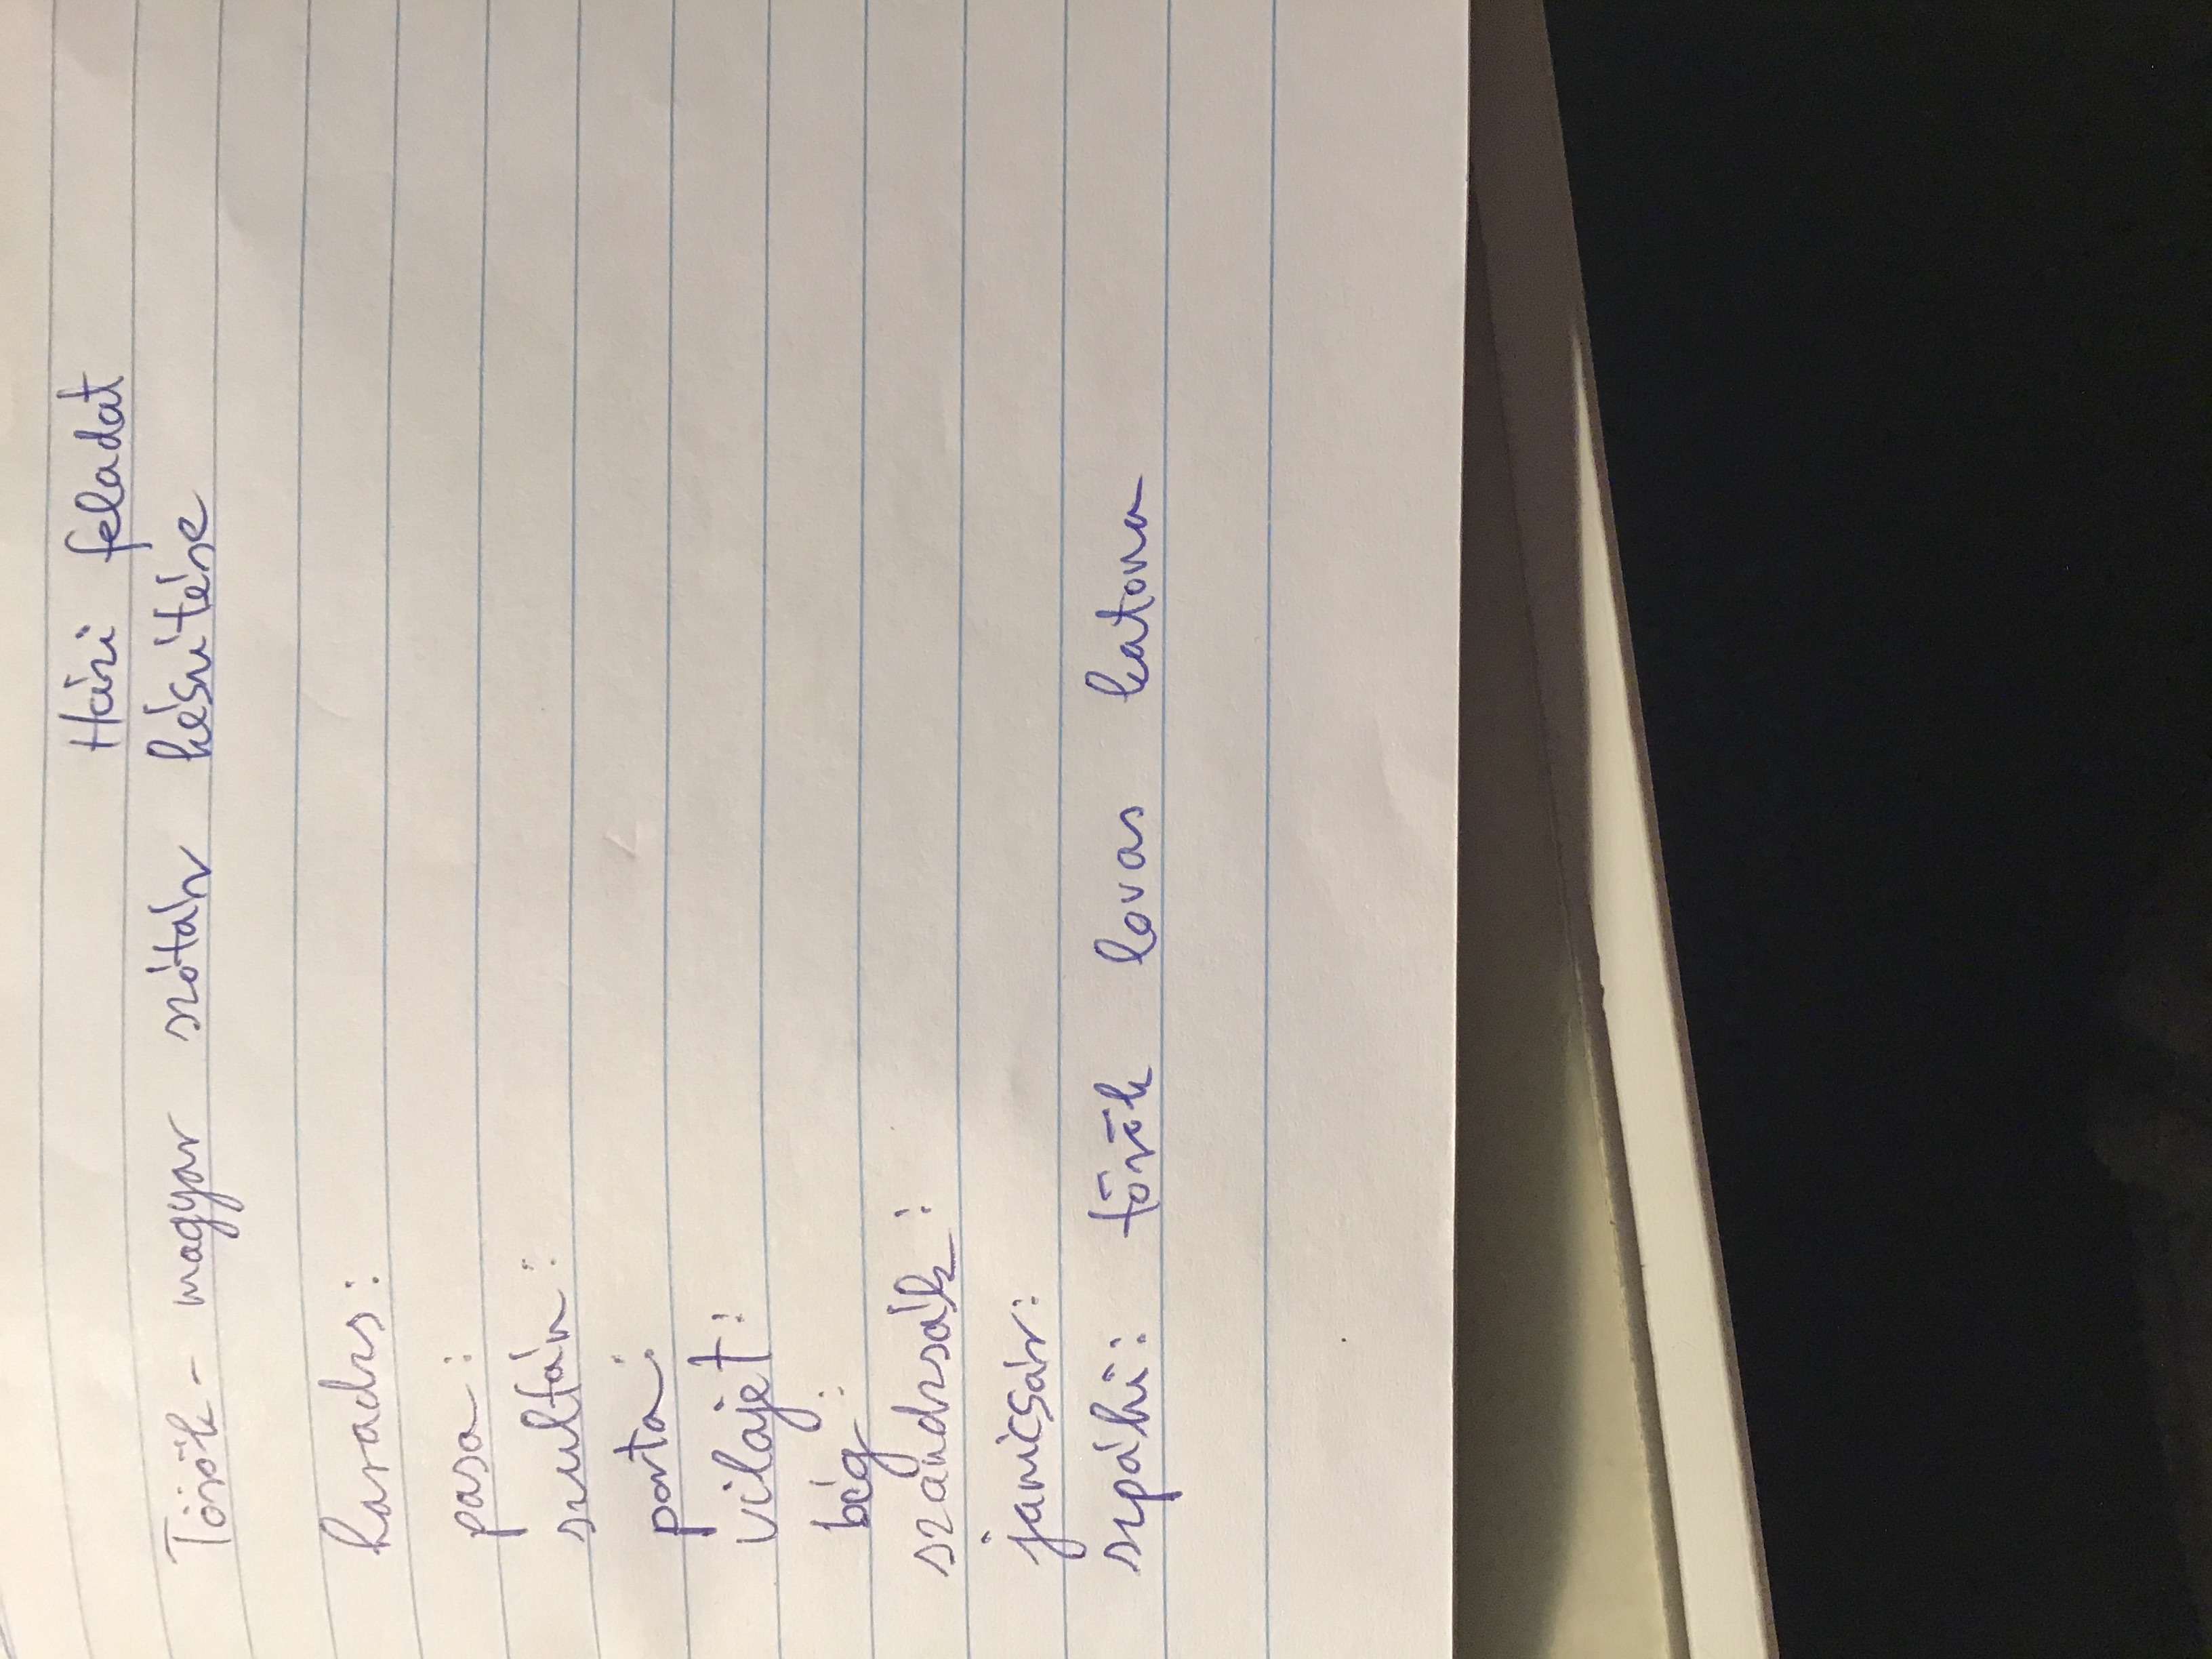 Házi feladat
Török - magyar szótár készítése
haradzs:
pasa:
szultán:
porta:
vilajet:
bég:
szandzsák:
janicsár:
szpáhi: török lovas katona